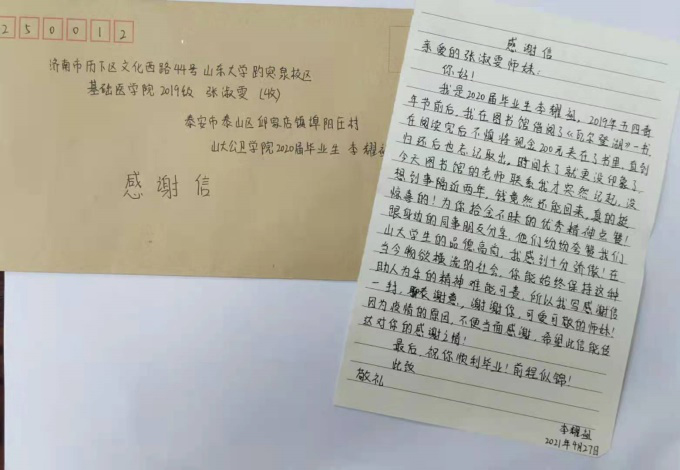 250012
济南市历下区文化西路44号山东大学趵突泉校区
基础医学院2019级 张淑雯（收）
泰安市泰山区邱家店镇埠阳庄村
山大公卫学院2020届毕业生 李耀
感谢信
感谢信
亲爱的张淑雯师妹：
你好！
我是2020届毕业生李耀益，2019年五四青
年节前后，我在图书馆借阅了《瓦尔登湖》一书，
在阅读完后不慎将现金200元夹在了书里，直到
归还后也忘记取出。时间长了就更没印象了，
今天图书馆的老师联系我才突然记起，没
想到事隔近两年，钱竟然还能回来，真的挺
惊喜的！为你拾金不昧的优秀精神点赞！
跟身边的同事朋友分享，他们纷纷夸赞我们
山大学生的品德高尚，我感到十分骄傲！在
当今物欲横流的社会，你能始终保持这种
助人为乐的精神难能可贵，所以我写感谢信
一封，聊表谢意，谢谢你，可爱可敬的师妹！
因为疫情的原因，不便当面感谢，希望此信能传
达对你的感谢之情！
最后，祝你顺利毕业！前程似锦！
此致
敬礼
李耀益
2021年4月27日